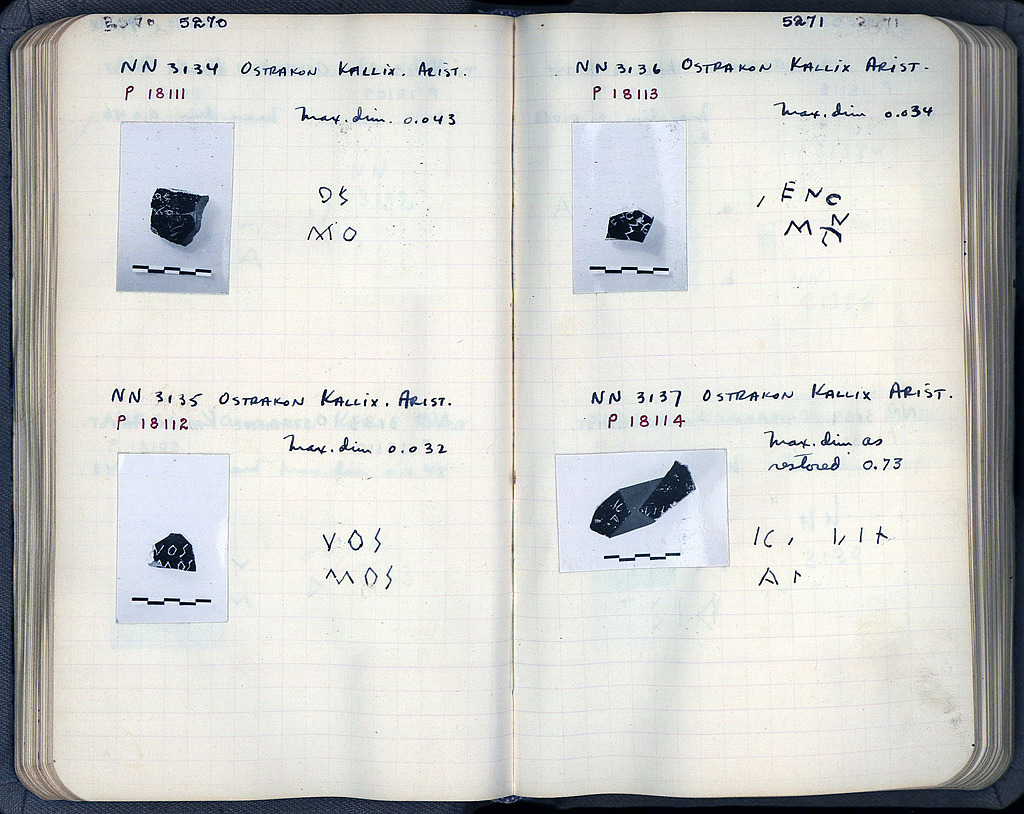 5270
NN 3134 OSTRAKON KALLIX. ARIST.
P 18111
Max. dim. 0.043
MO
NN 3135 OSTRAKON KALLIX. ARIST.
P 18112
Max. dim 0.032
VOS
MOS
5271
NN 3136 OSTRAKON KALLIX ARIST.
P 18113
Max. dim 0.034
NN 3137 OSTRAKON KALLIX ARIST.
P 18114
Max. dim as
restored 0.73